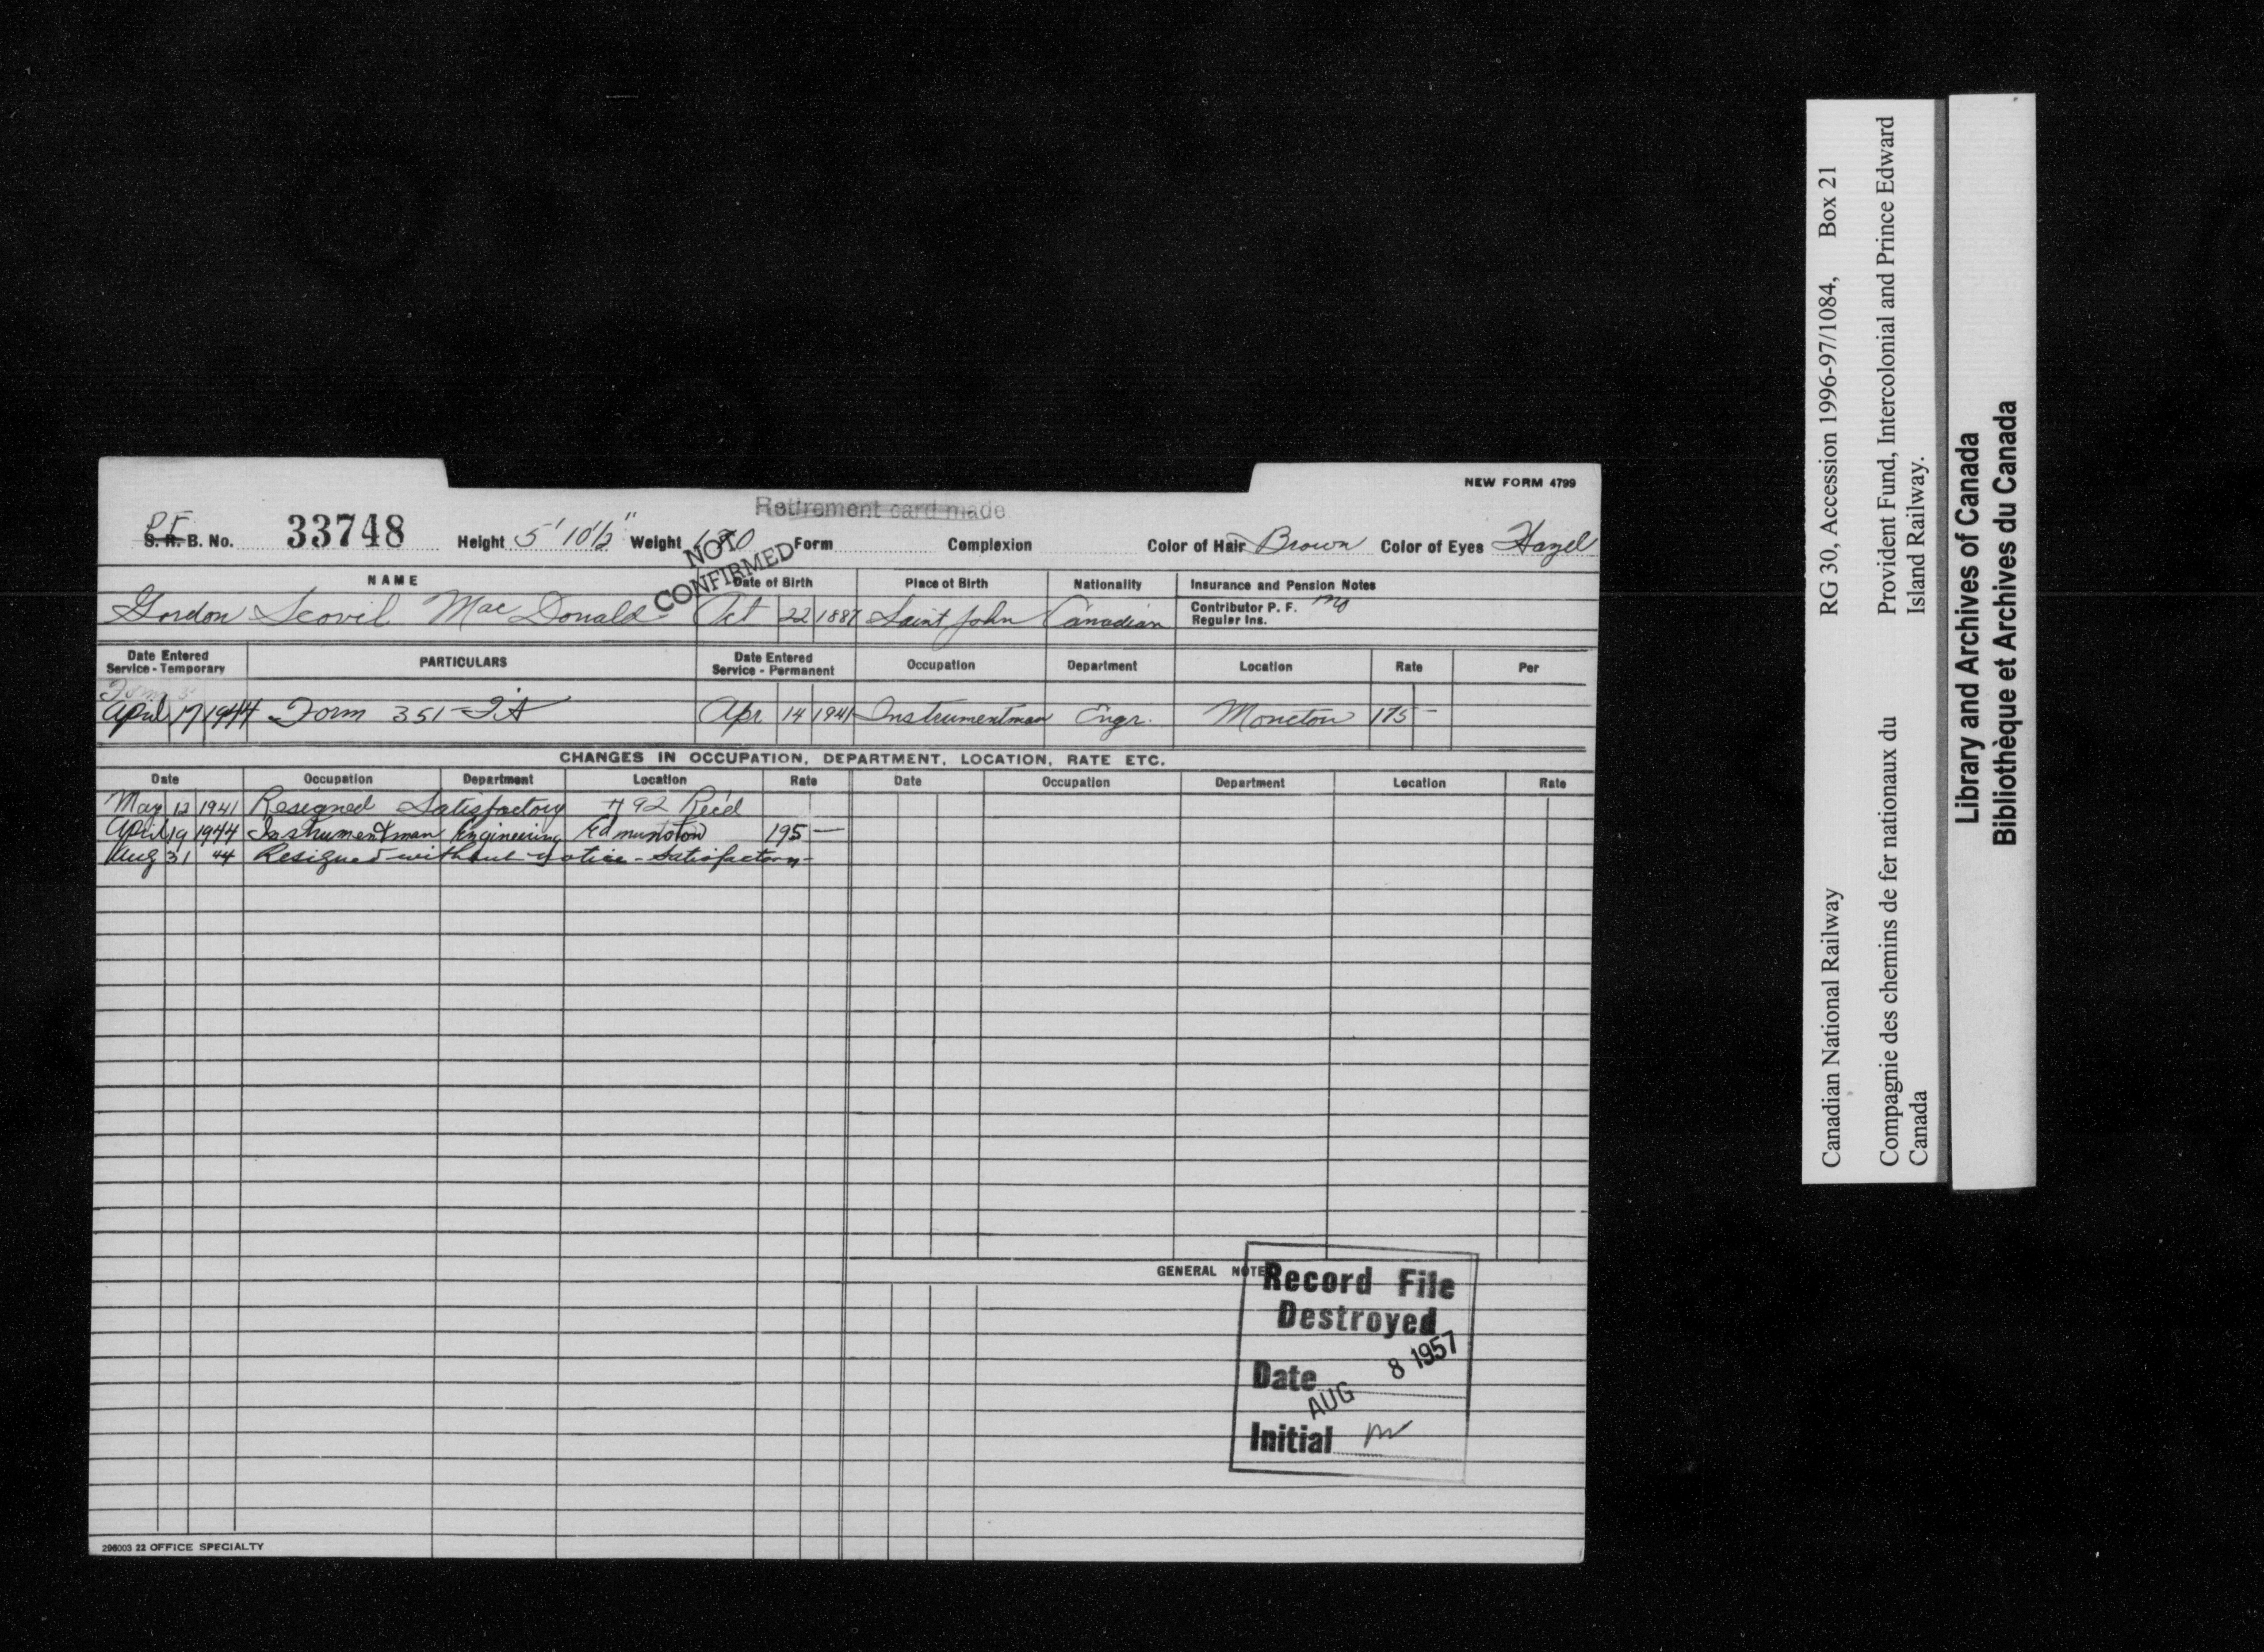 NEW FORM 4799
Retirement card made
P.F.
S. R. B. No. 33748 Height 5' 10½" Weight Form Complexion Color of Hair Brown Color of Eyes Hazel
NOT CONFIRMED
NAME Date of Birth Place of Birth Nationality Insurance and Pension Notes
Gordon Scovil MacDonald Oct 22 1887 Saint John Canadian Contributor P. F. no
Regular Ins.
Date Entered Service - Temporary PARTICULARS Date Entered Service - Permanent Occupation Department Location Rate Per
April 17 1944 Form 351 Apr 14 1941 Instrumentman Engr. Moncton 175 -
CHANGES IN OCCUPATION, DEPARTMENT, LOCATION, RATE ETC.
Date Occupation Department Location Rate Date Occupation Department Location Rate
May 12 1941 Resigned Satisfactory #92 Rec'd
April 19 1944 Instrumentman Engineering Edmunston 195 -
Aug 31 44 Resigned without notice - Satisfactory -
GENERAL NOTE
Record File
Destroyed
Date AUG 8 1957
Initial
296003 22 OFFICE SPECIALTY
Canadian National Railway RG 30, Accession 1996-97/1084, Box 21
Compagnie des chemins de fer nationaux du Canada
Provident Fund, Intercolonial and Prince Edward Island Railway.
Library and Archives of Canada
Bibliothèque et Archives du Canada